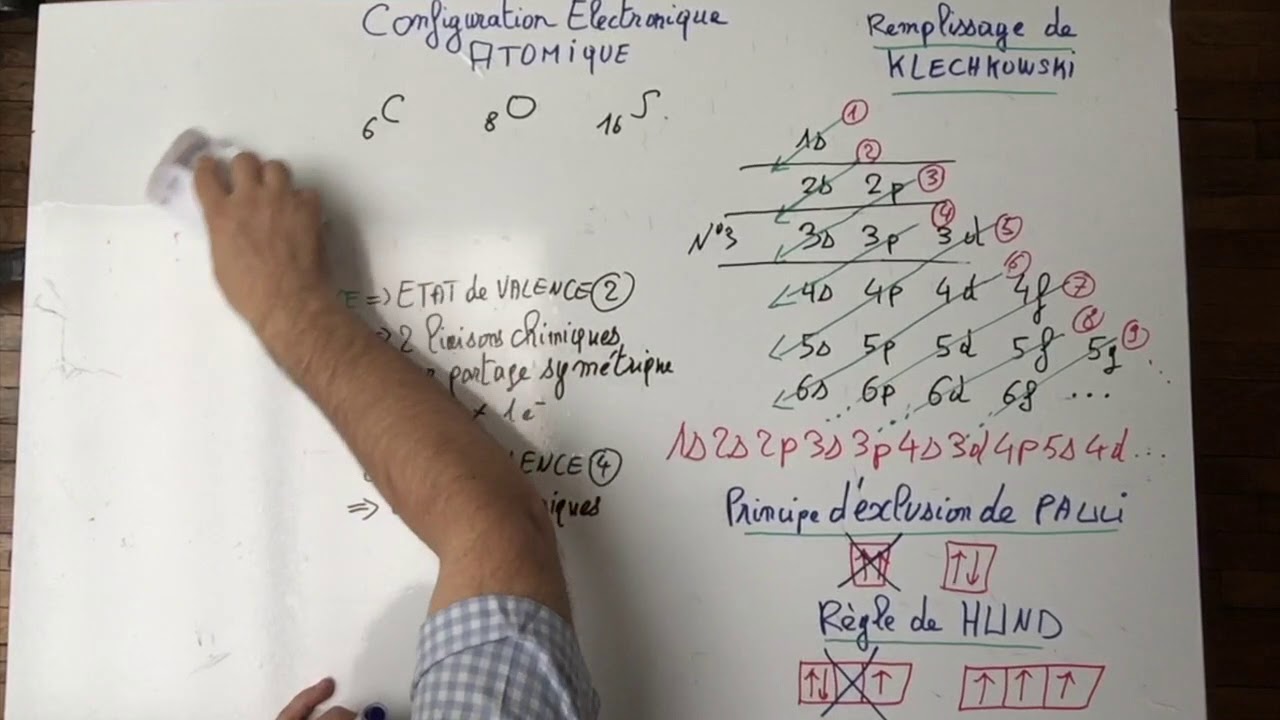 Configuration Electronique
ATOMIQUE
6C 8O 16S
=> ETAT de VALENCE ②
2 liaisons chimiques
partage symétrique
1 e⁻
④
=>
Remplissage de
KLECHKOWSKI
1s ①
2s 2p ② ③
N°3 3s 3p 3d ④ ⑤
4s 4p 4d 4f ⑥ ⑦
5s 5p 5d 5f 5g ⑧ ⑨
6s 6p 6d 6f ...
1s 2s 2p 3s 3p 4s 3d 4p 5s 4d ...
Principe d'éxclusion de PAULI
↑↑ ↑↓
Règle de HUND
↑↓ ↑ ↑ ↑ ↑